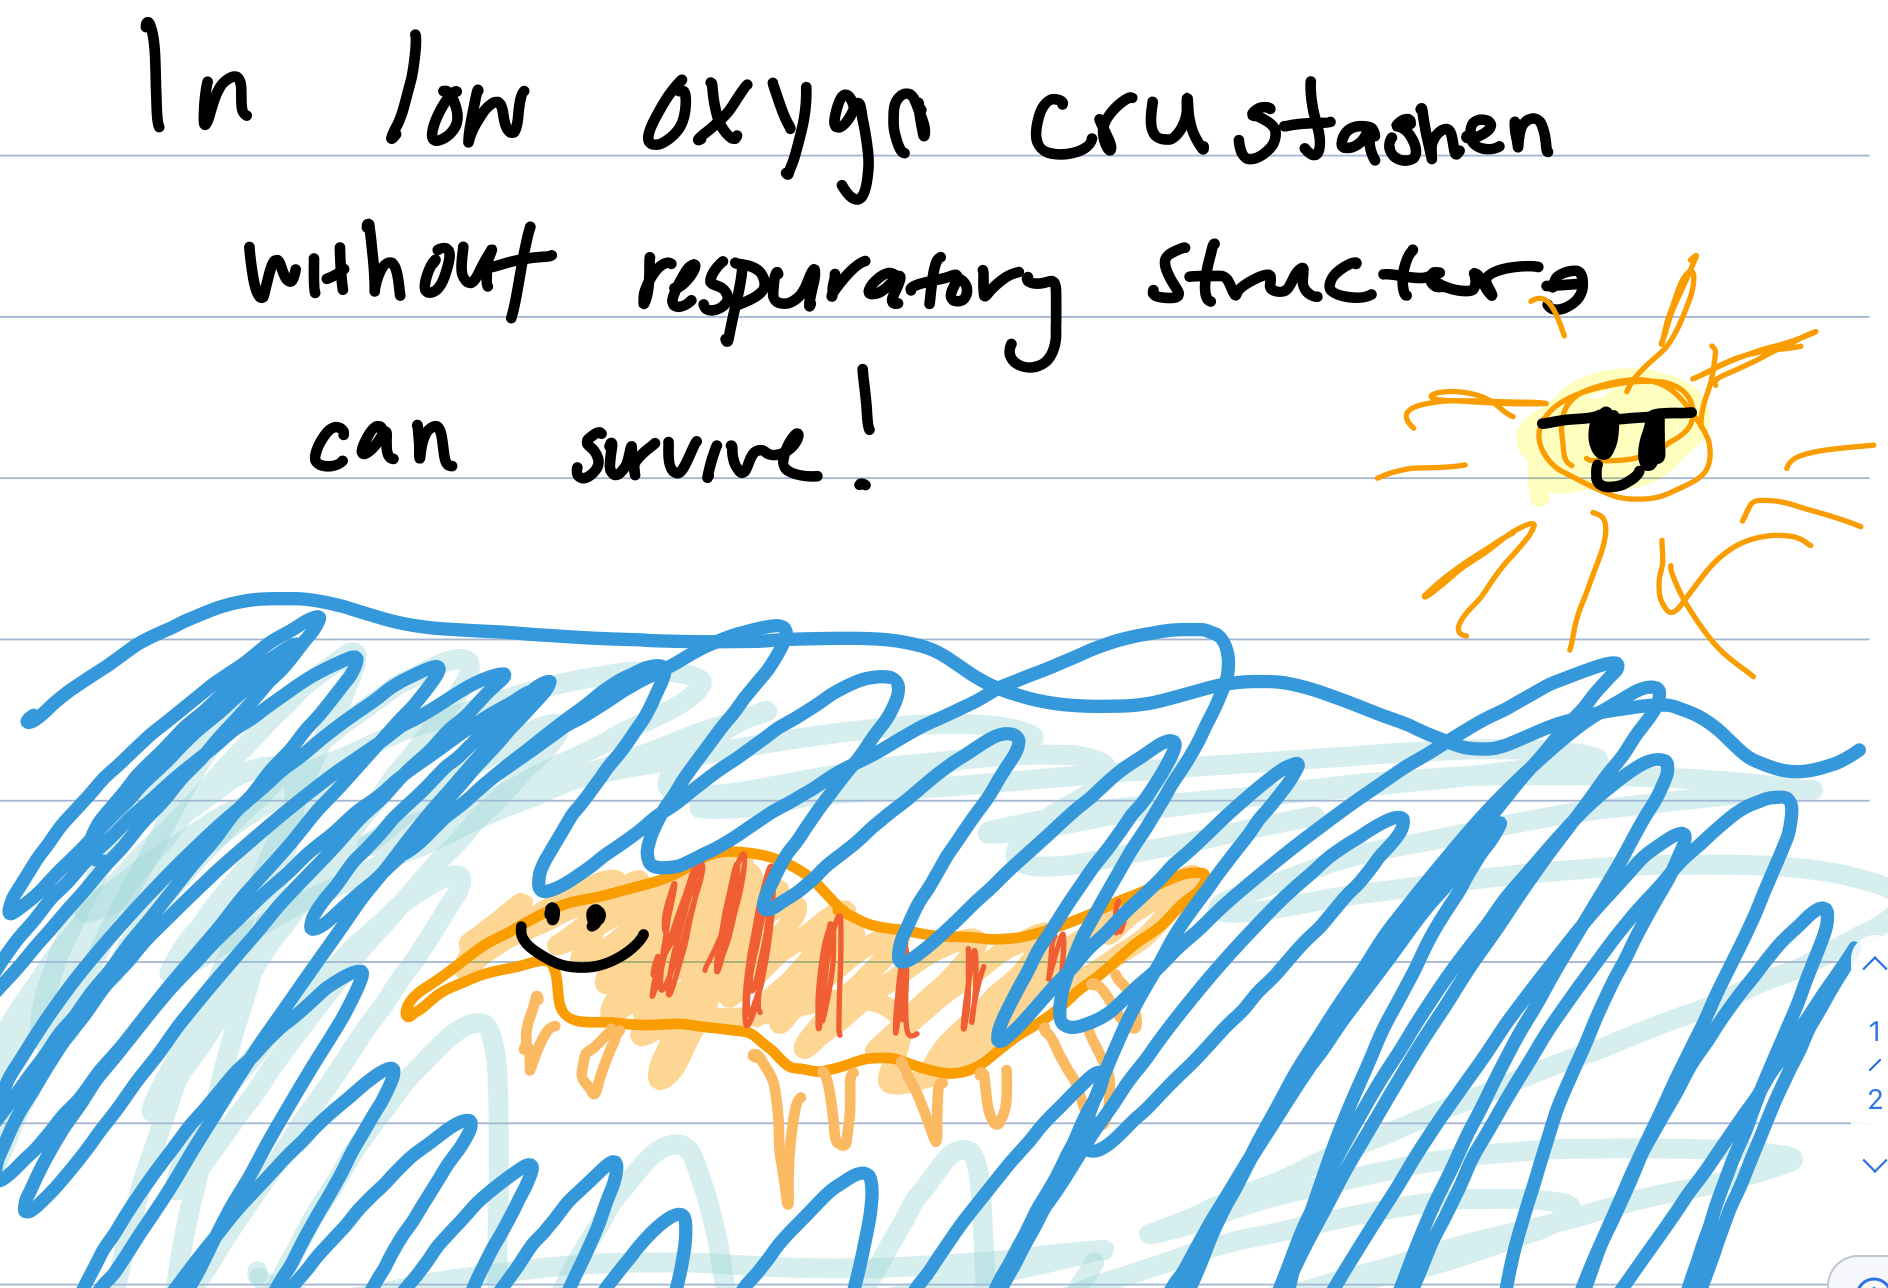 In low oxygn crustashen
without respuratory structers
can survive!
1
/
2